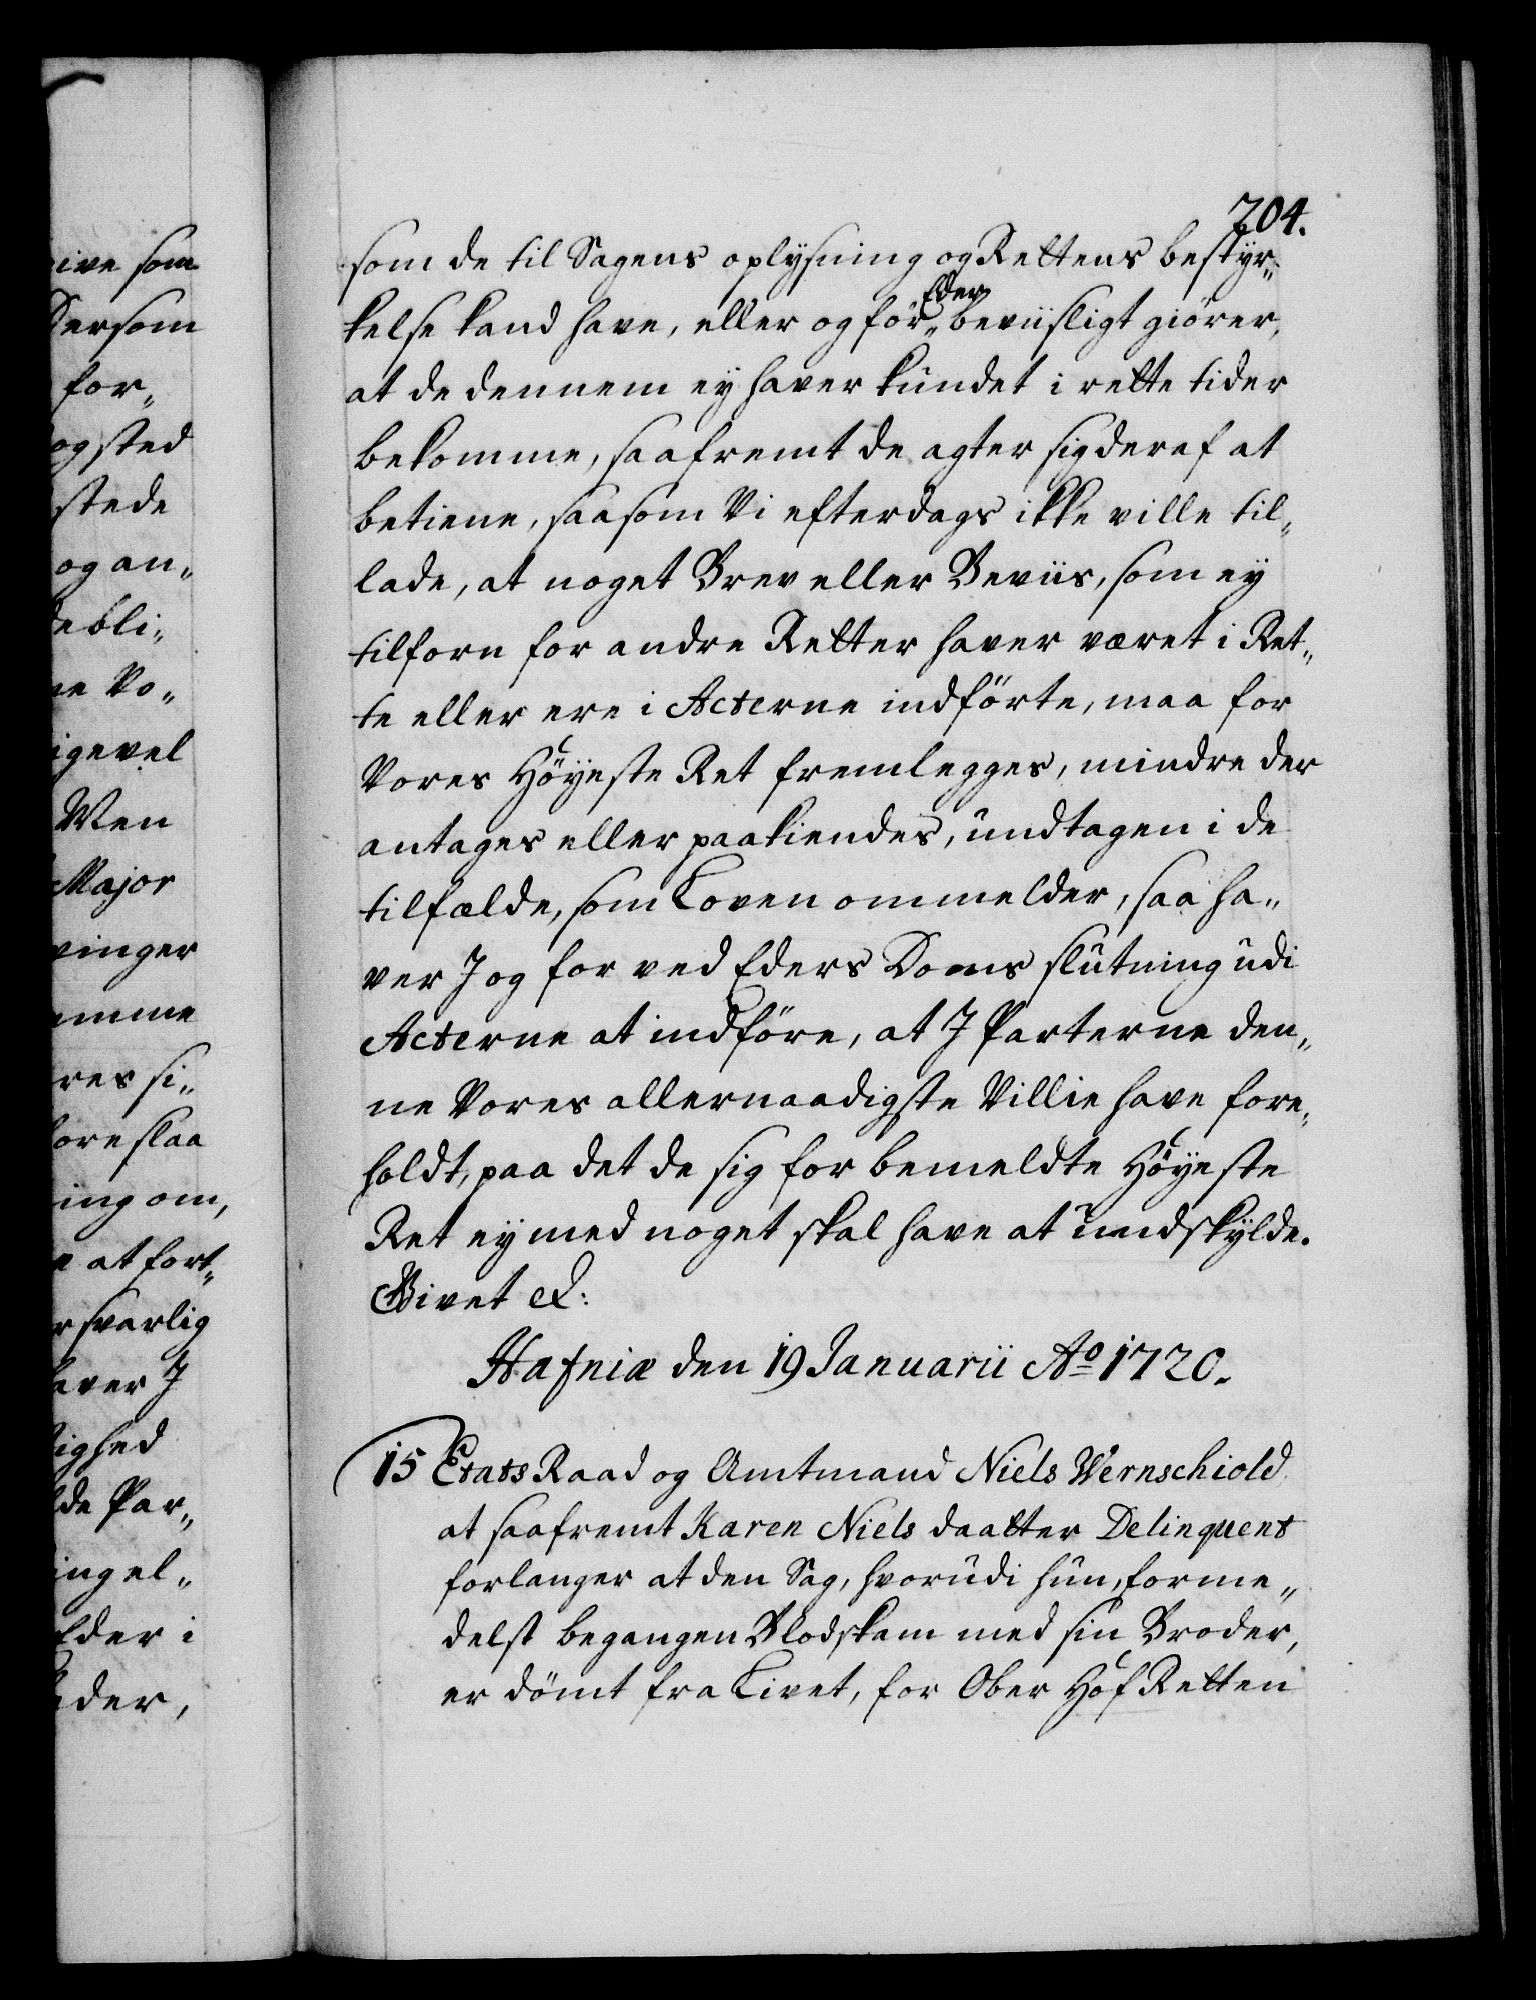 204.
som de til Sagens oplysning og Rettens bestyr„
kelse kand have, eller og for„ Eder beviisligt giörer,
at de dennem ey haver kundet i rette tider
bekomme, saafremt de agter sig deraf at
betiene, saasom Vi efterdags ikke ville til„
lade, at noget Brev eller Beviis, som ey
tilforn for andre Retter haver været i Ret„
te eller ere i Acterne indförte, maa for
Vores Höyeste Ret fremlegges, mindre der
antages eller paakiendes, undtagen i de
tilfælde, som Loven ommelder, saa ha„
ver J og for ved Eders Doms slutning udi
Acterne at indföre, at J Parterne den„
ne Vores allernaadigste Villie have fore„
holdt, paa det de sig for bemeldte Höyeste
Ret ey med noget skal have at undskylde.
Givet &:
Hafniæ den 19 Januarii Ao 1720.
15 Etats Raad og Amtmand Niels Wernschiold
at saafremt Karen Niels daatter Delinquent
forlanger at den Sag, hvorudi hun, forme„
delst begangen Blodskam med sin Broder,
er dömt fra Livet, for Ober Hof Retten
ive som
Dersom
for„
og sted
stede
og an„
debli„
ne Vo„
igevel
Wen
Major
ninger
amme
res si„
fore slaa
ing om,
e at fort„
rsvarlig
aver J
ighed
lde Par„
ing el„
Eder i
eder,